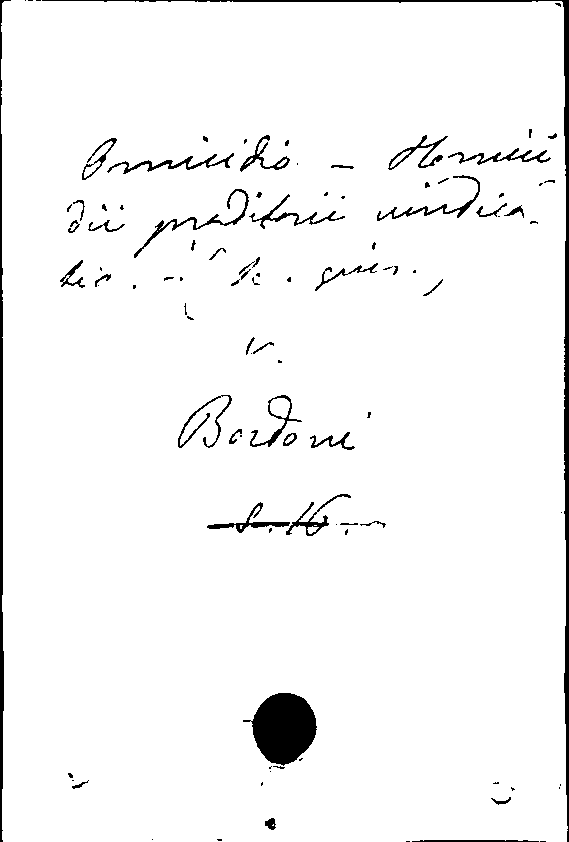 Omicidio - Homici
dii proditorii vindica-
tio.
v.
Bordoni
S. 16.